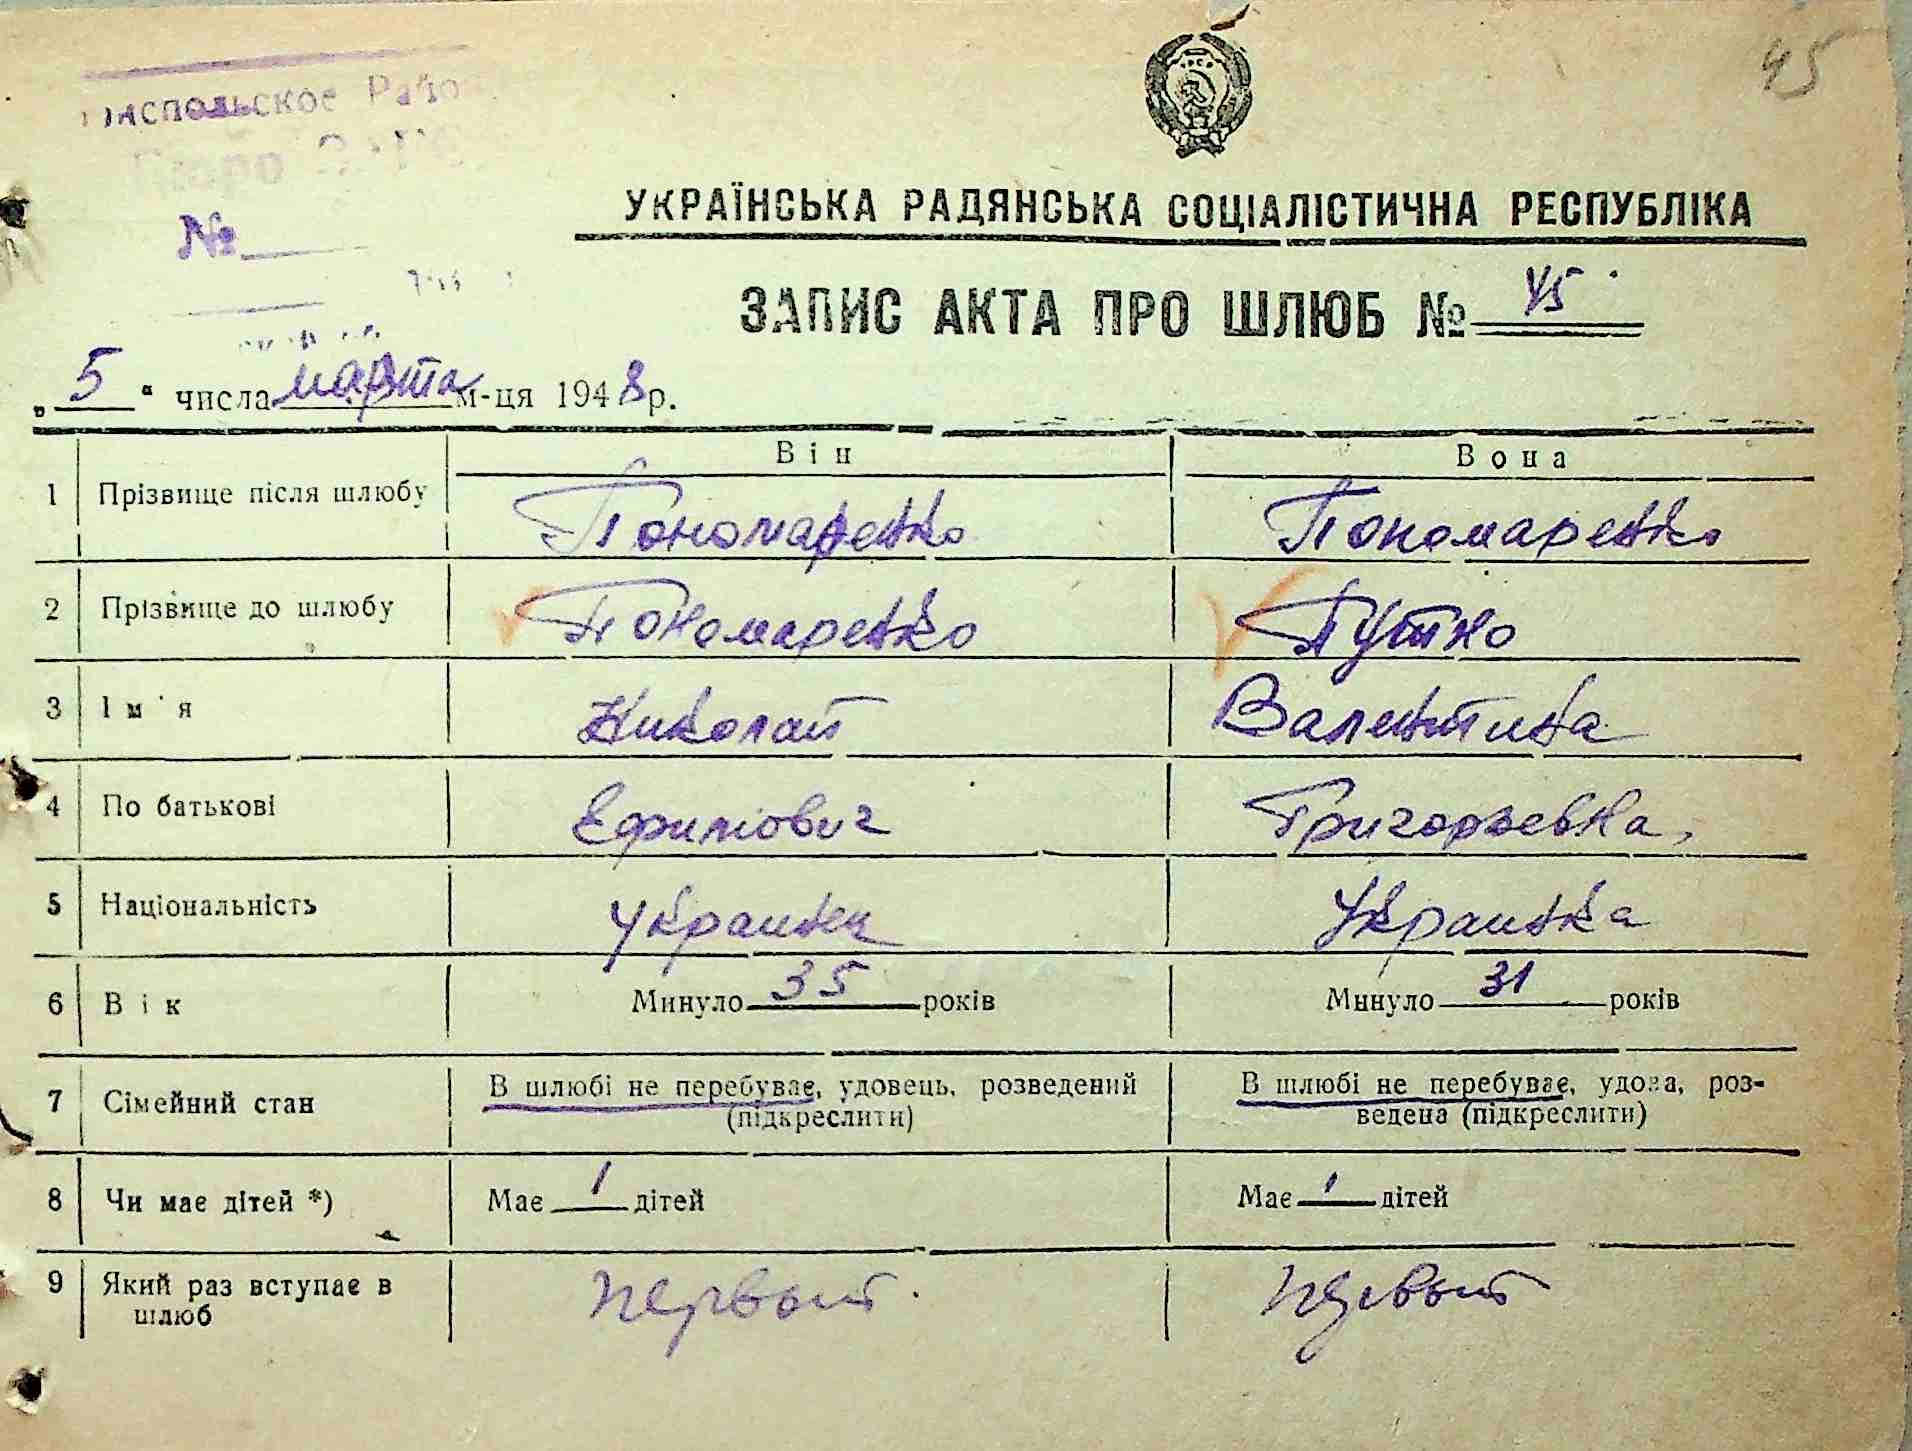 45
испольское Райо
Бюро ЗАГС
№
УКРАЇНСЬКА РАДЯНСЬКА СОЦІАЛІСТИЧНА РЕСПУБЛІКА
ЗАПИС АКТА ПРО ШЛЮБ № 45
„5“ числа марта м-ця 1948 р.
Він Вона
1 Прізвище після шлюбу Пономаренко Пономаренко
2 Прізвище до шлюбу Пономаренко Путно
3 Ім'я Николай Валентина
4 По батькові Ефимович Григорьевна
5 Національність Украинец Украинка
6 Вік Минуло 35 років Минуло 31 років
7 Сімейний стан В шлюбі не перебуває, удовець, розведений (підкреслити) В шлюбі не перебуває, удова, роз-
ведена (підкреслити)
8 Чи має дітей *) Має 1 дітей Має 1 дітей
9 Який раз вступає в шлюб первый первый